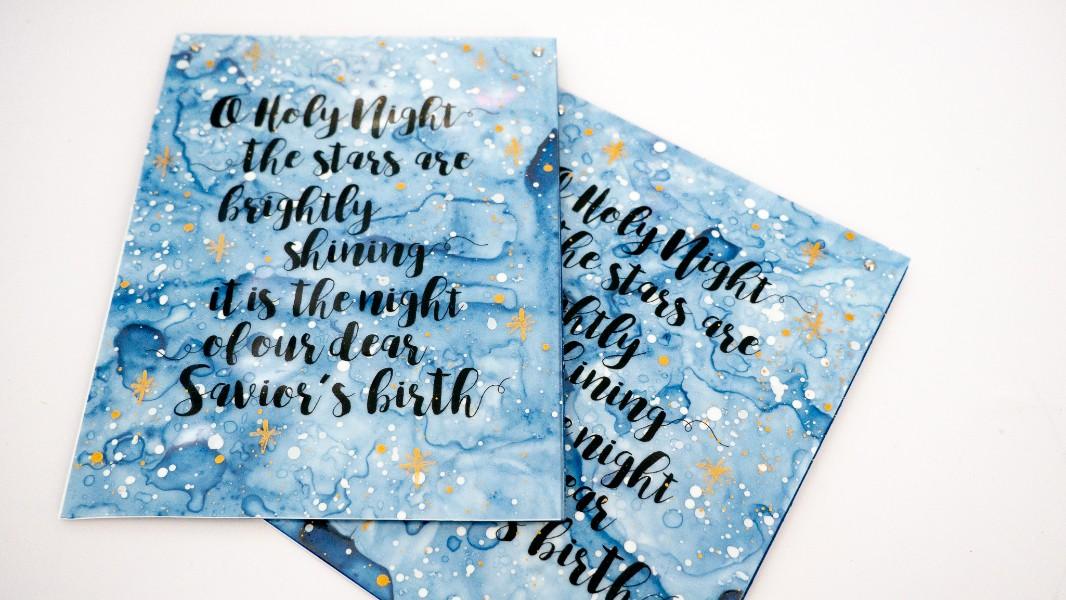 O Holy Night
the stars are
brightly
shining
it is the night
of our dear
Savior's birth
Holy Night
the stars are
htly
ining
night
ear
s birth